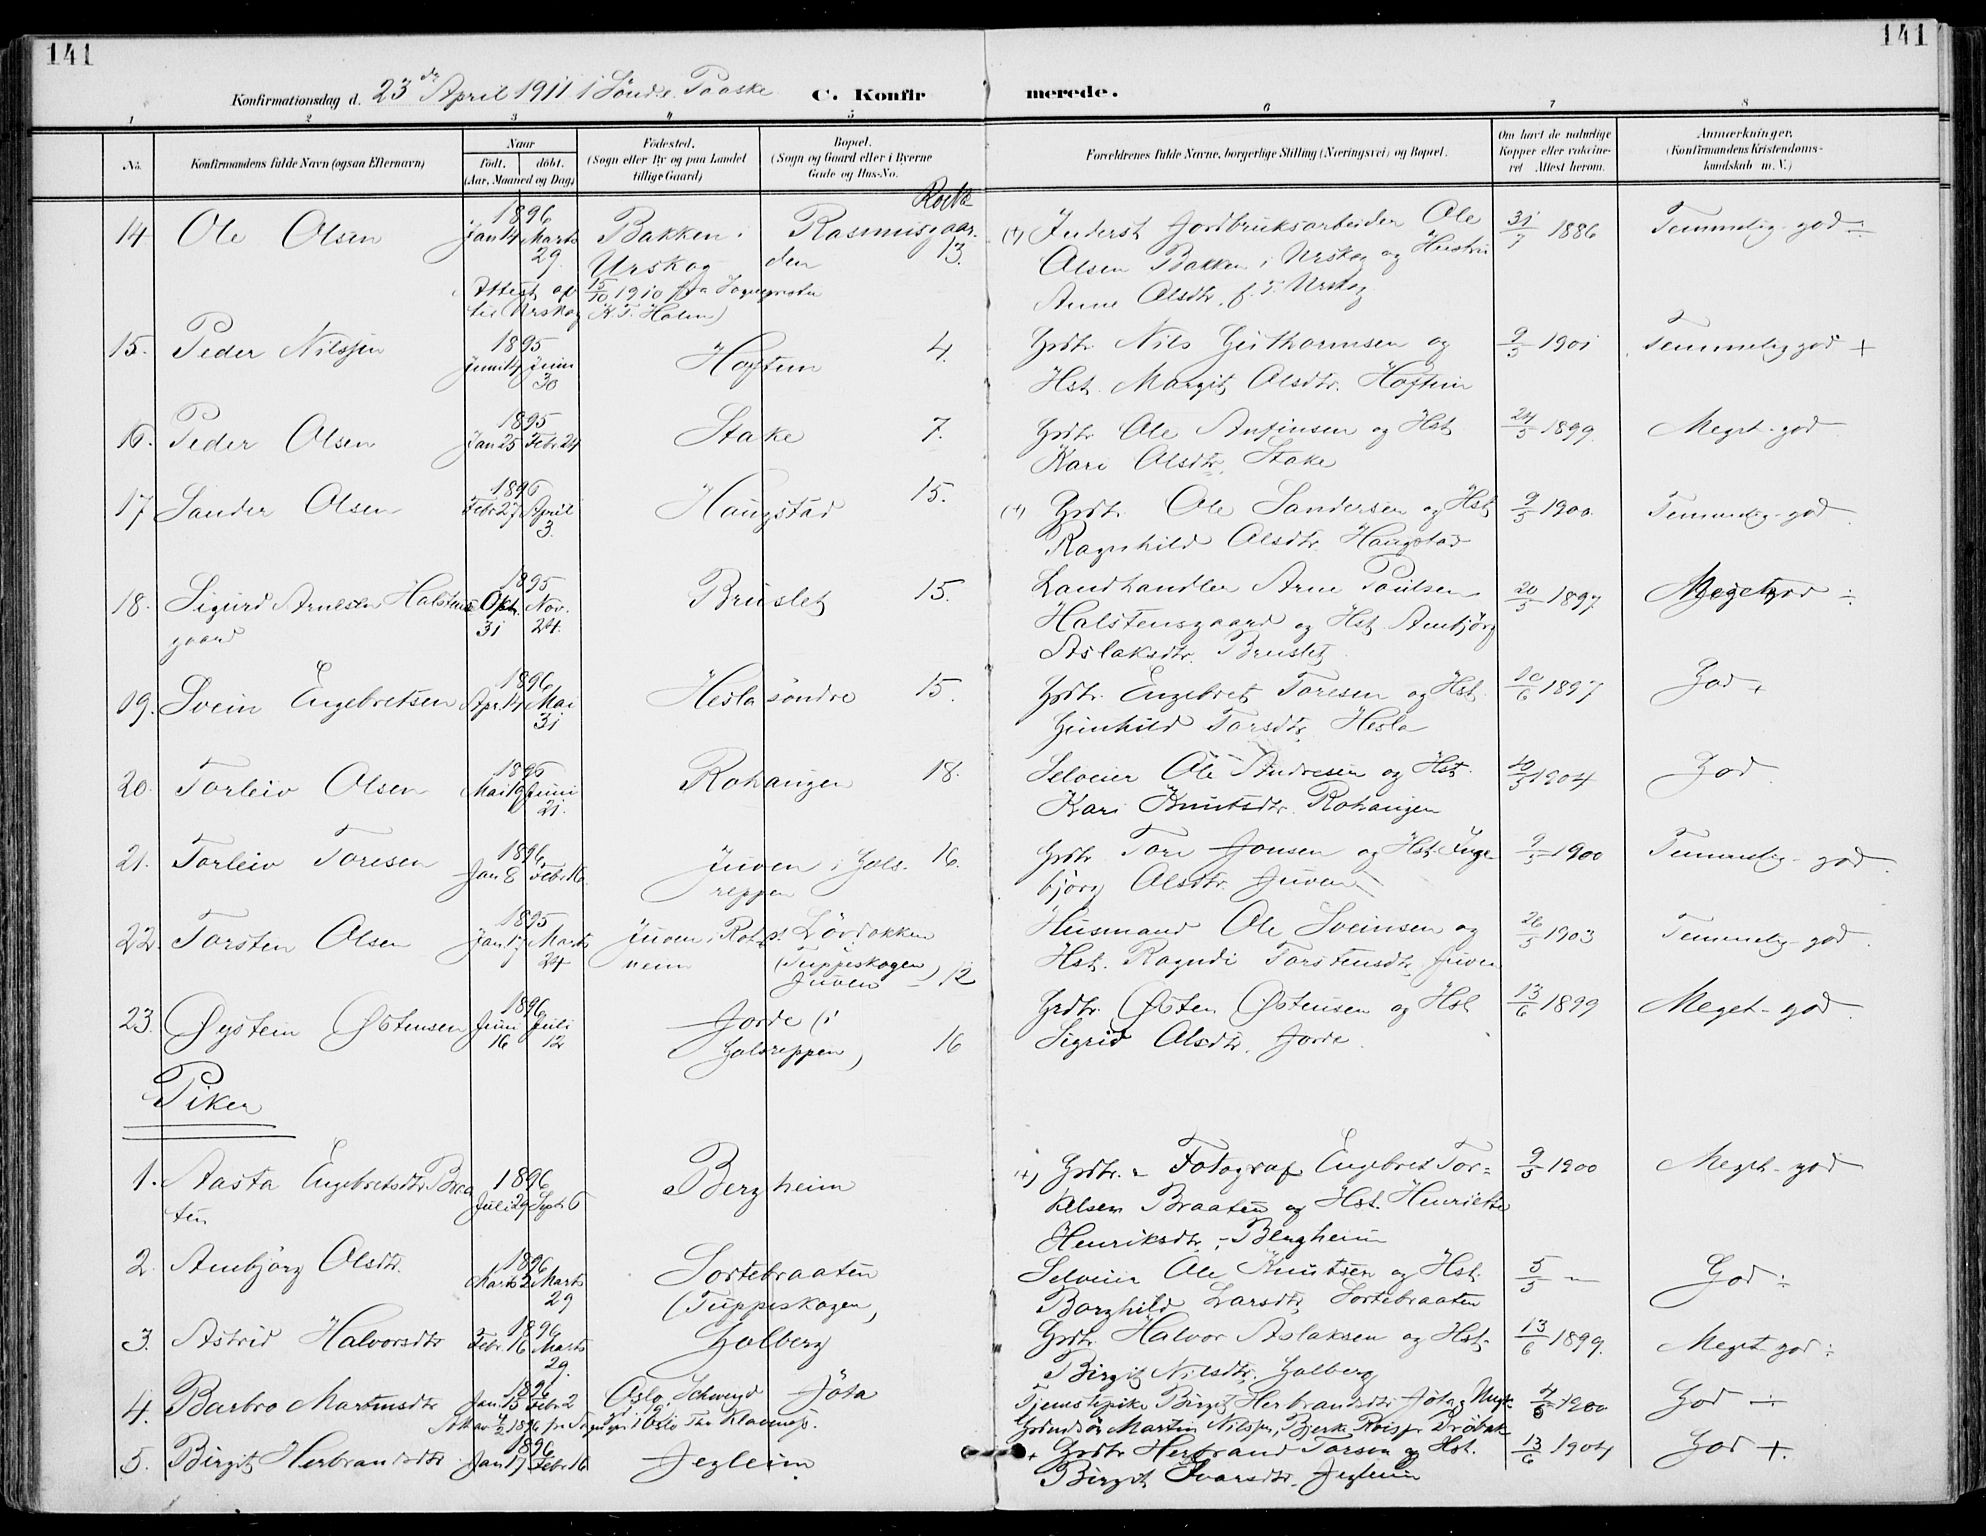 141 141
Konfirmationsdag d. 23de April 1911 1 Sönd. e. Paaske C. Konfirmerede.
1 2 3 4 5 6 7 8
No. Konfirmandens fulde Navn (ogsaa Efternavn) Naar født. døbt. (Aar, Maaned og Dag) Fødested. (Sogn eller By og paa Landet tillige Gaard) Bopæl. (Sogn og Gaard eller i Byerne Gade og Hus-No. Forældrenes fulde Navne, borgerlige Stilling (Næringsvei) og Bopæl. Om havt de naturlige Kopper eller vakcineret Attest herom. Anmærkninger. (Konfirmandens Kristendomskundskab m. V.)
14 Ole Olsen 1896 Jan 14 Marts 29. Bakken i Urskog Rasmusgaarden 13. (+) Inderst Jordbruksarbeider Ole
Olsen Bakken i Urskog og Hustru
Anne Olsdtr. f. i Urskog. 31/7 1886 Temmelig god ÷
Attest af 15/10 1910 fra Sogneprest
til Urskog K. T. Holm)
15. Peder Nilssen 1895 Juni 4 Juni 30 Hoftun 4. Grdbr. Nils Guthormsen og
Hst. Margit Olsdtr. Hoftun 9/5 1901 Temmelig god +
16. Peder Olsen 1895 Jan 25 Febr. 24 Stake 7. Grdbr. Ole Anfinsen og Hst
Kari Olsdtr. Stake 24/5 1899. Meget god
17 Sander Olsen 1896 Febr 27 April 3. Haugstad 15. (+) Grdbr. Ole Sandersen og Hst
Ragnhild Olsdtr. Haugstad 9/5 1900. Temmelig god.
18. Sigurd Arnesen Halstensgaard 1895 Okt. 31 Nov. 24. Bruslet 15. Landhandler Arne Paulsen
Halstensgaard og Hst Ambjörg
Aslaksdtr. Bruslet. 20/5 1897 Meget god ÷
19. Svein Engebretsen 1896 Apr 14 Mai 31 Hesla söndre 15. Grdbr. Engebret Toresen og Hst.
Gunhild Torsdtr. Hesla 10/6 1897 God +
20. Torleiv Olsen 1896 Mai 19 Juni 21. Rohaugen 18. Selveier Ole Andresen og Hst.
Kari Knutsdtr. Rohaugen 10/5 1904 God
21. Torleiv Toresen 1896 Jan 8 Febr. 16. Juven i Golsreppen 16. Grdbr. Tore Jonsen og Hst. Ingebjörg Olsdtr. Juven 9/5 1900 Temmelig god.
22. Torsten Olsen 1895 Jan 17 Marts 24 Juven i Rotneim Lördokken
(Tuppeskogen
Juven) 12 Husmand Ole Sveinsen og
Hst. Ragndi Torstensdtr. Juven 26/5 1903 Temmelig god.
23. Øystein Østensen 1896 Juni 16 Juli 12 Jorde (i
Golsreppen) 16 Grdbr. Østen Østensen og Hst
Sigrid Olsdtr. Jorde. 13/6 1899 Meget god.
Piker
1. Aasta Engebretsdtr Braaten 1896 Juli 29 Sept 6 Bergheim (+) Grdbr. – Fotograf Engebret Torkelsen Braaten og Hst. Henriette
Henriksdtr. – Bergheim 9/5 1900 Meget god
2. Ambjörg Olsdtr. 1896 Marts 2 Marts 29 Sortebraaten
(Tuppeskogen) Selveier Ole Knutsen og Hst.
Borghild Larsdtr. Sortebraaten 5/5 – God ÷
3. Astrid Halvorsdtr 1896 Febr. 16 Marts 29. Golberg Grdbr. Halvor Aslaksen og Hst.
Birgit Nilsdtr. Golberg 13/6 1899. Meget god ÷
4. Barbro Martinsdtr 1896 Jan. 13 Febr. 2 Oslo Jöta Tjenestepike Birgit Herbrandsdtr Jöta og
Martin Nilssen, Bjerke Dröbak 4/5 1900 God ÷
5. Birgit Herbrandsdtr 1896 Jan 17 Febr. 16 Jegleim + Grdbr Herbrand Torsen og Hst.
Birgit Ivarsdtr. Jegleim 13/6 1904 God +